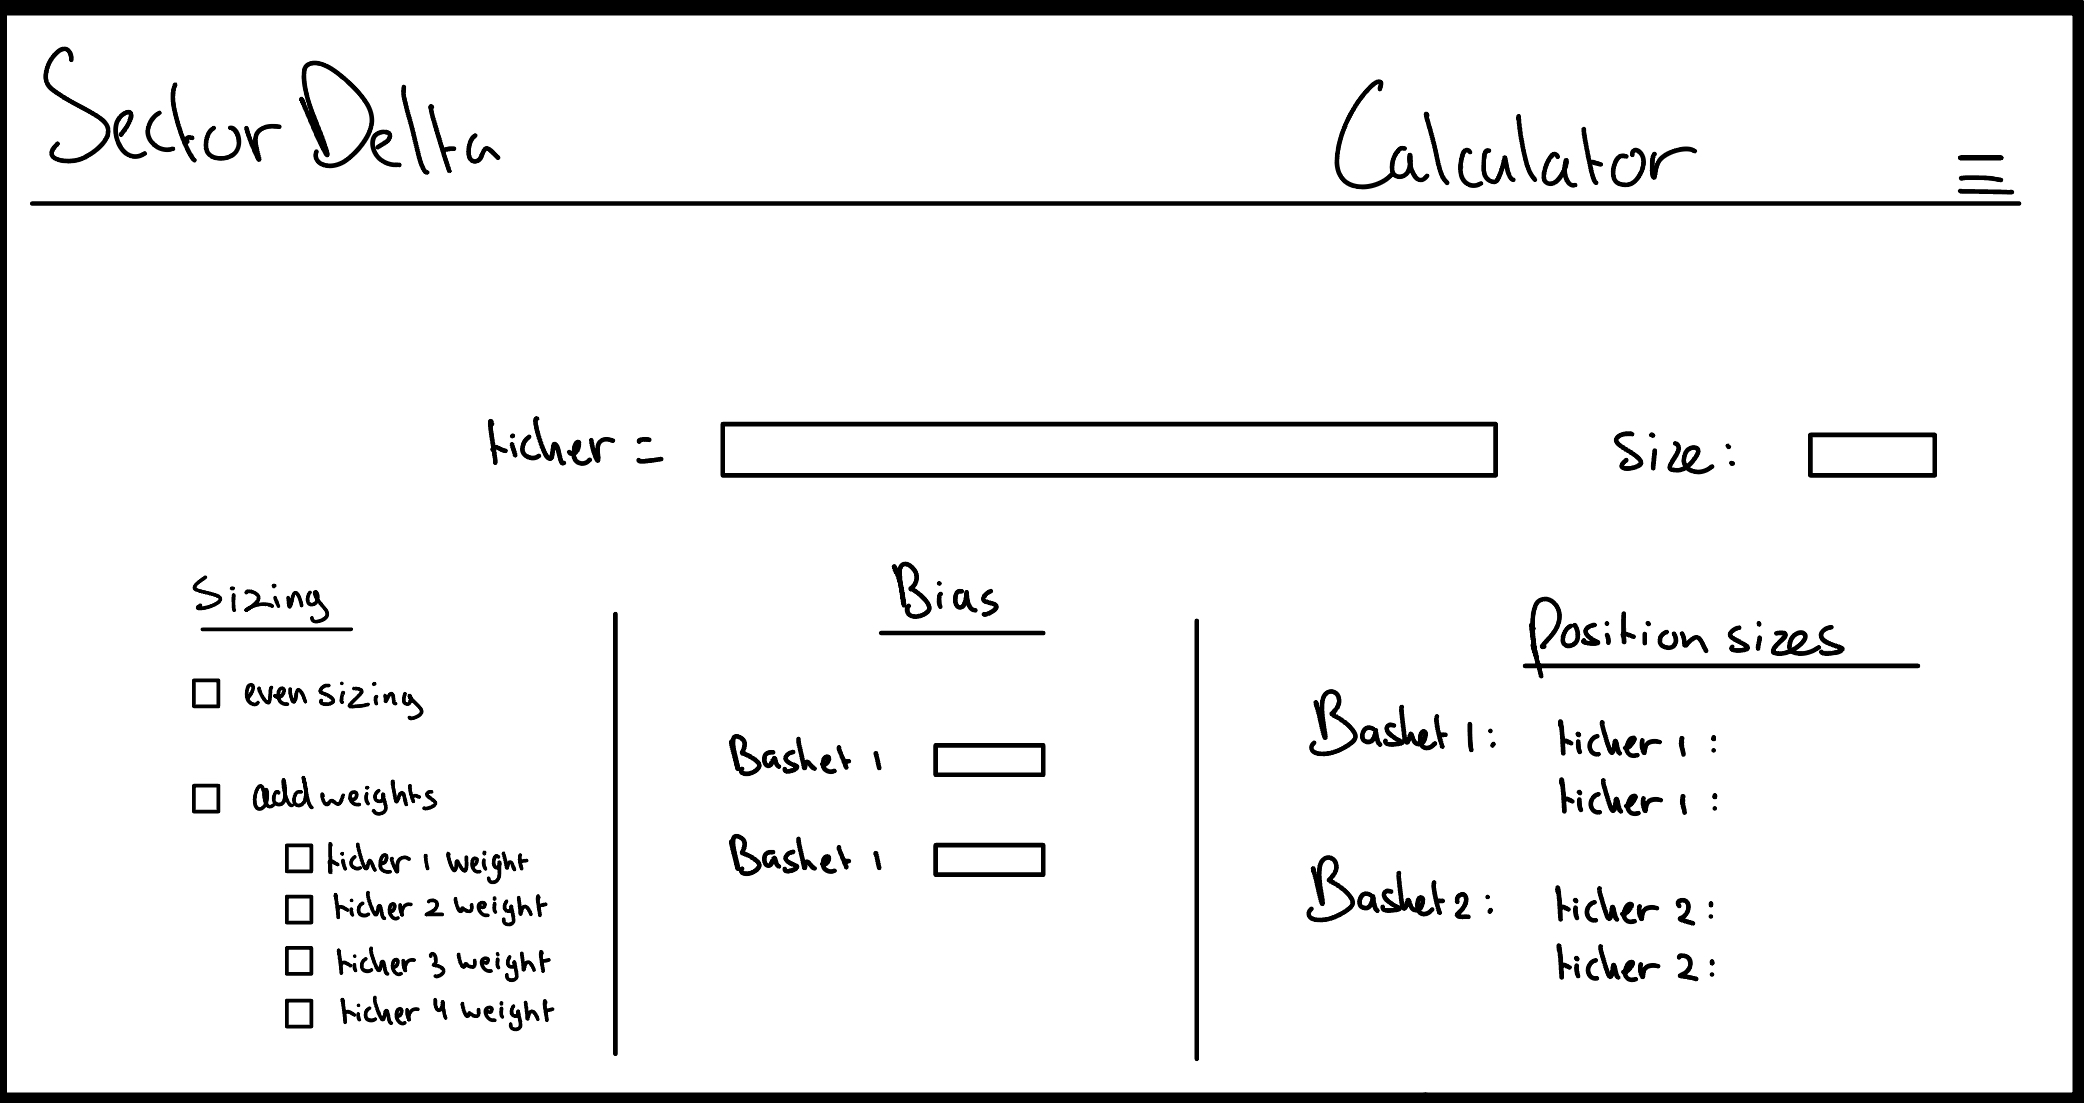 Sector Delta
Calculator
ticker =
Size:
Sizing
even sizing
add weights
ticker 1 weight
ticker 2 weight
ticker 3 weight
ticker 4 weight
Bias
Basket 1
Basket 1
Position sizes
Basket 1: ticker 1 :
ticker 1 :
Basket 2: ticker 2 :
ticker 2 :